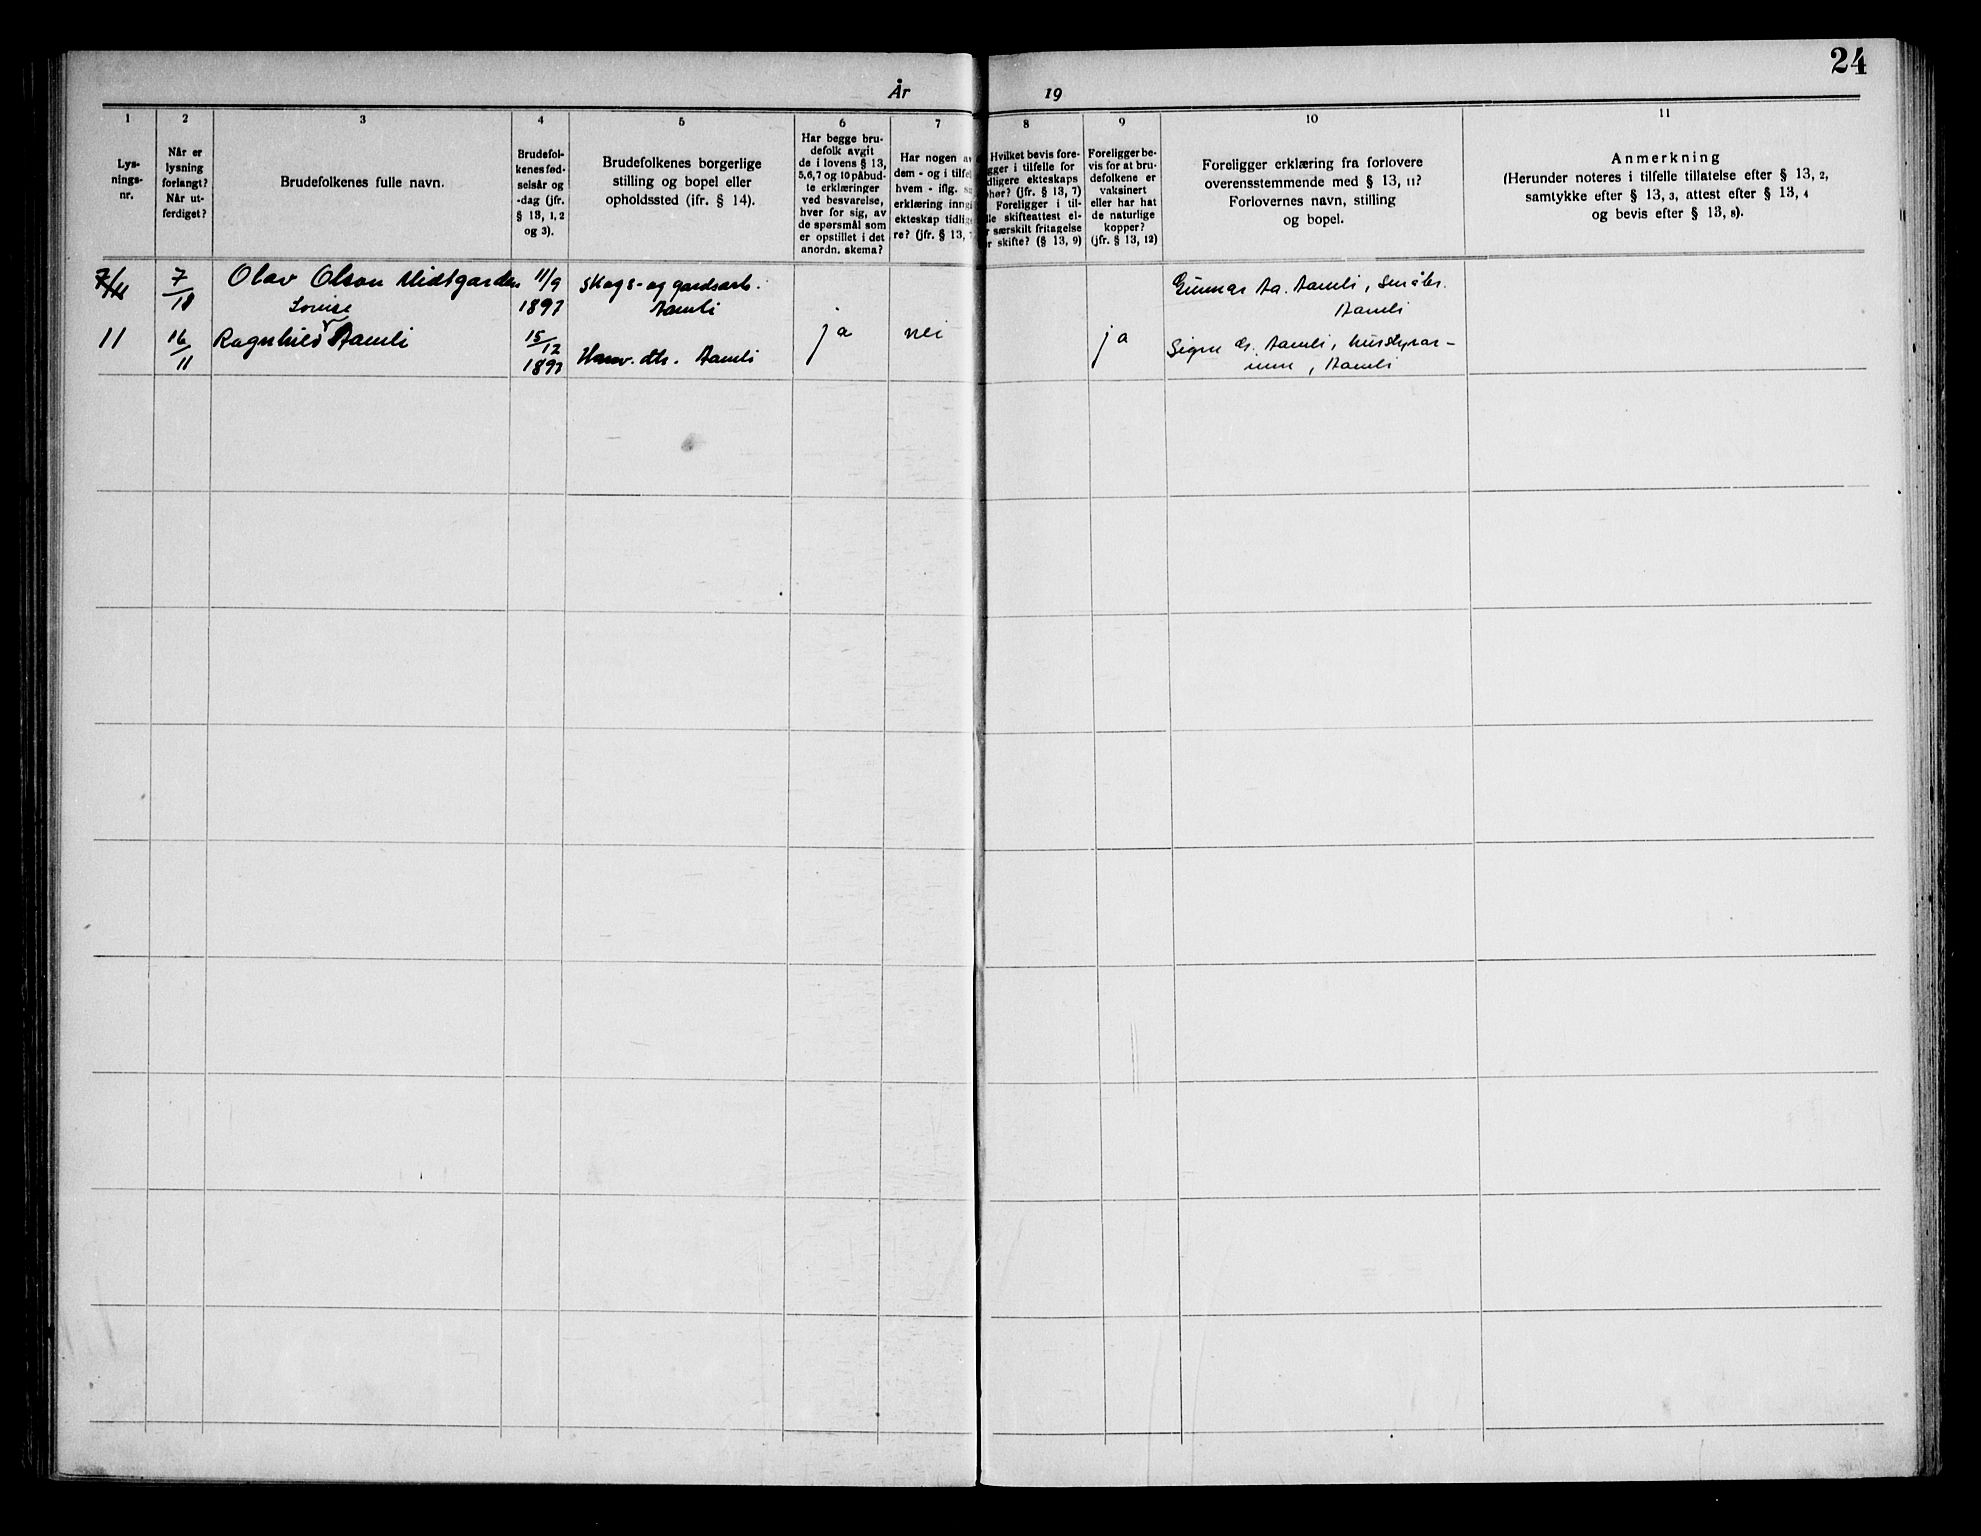 24
År 19
1
Lys-
nings-
nr.
2
Når er
lysning
forlangt?
Når ut-
ferdiget?
3
Brudefolkenes fulle navn.
4
Brudefol-
kenes fød-
selsår og
-dag (jfr.
§ 13, 1, 2
og 3).
5
Brudefolkenes borgerlige
stilling og bopel eller
opholdssted (ifr. § 14).
6
Har begge bru-
defolk avgit
de i lovens § 13,
5, 6, 7 og 10 påbud-
te erklæringer
ved besvarelse,
hver for sig, av
de spørsmål som
er opstillet i det
anordn. skema?
7
Har nogen av
dem - og i tilfel
hvem - iflg. s
erklæring inng
ekteskap tidlig
re? (jfr. § 13, 7
8
Hvilket bevis fore-
gger i tilfelle for
dligere ekteskaps
phør? (jfr. § 13, 7)
Foreligger i til-
lle skifteattest el-
r særskilt fritagelse
r skifte? (§ 13, 9)
9
Foreligger be-
vis for at bru-
defolkene er
vaksinert
eller har hat
de naturlige
kopper?
(jfr. § 13, 12)
10
Foreligger erklæring fra forlovere
overensstemmende med § 13, 11?
Forlovernes navn, stilling
og bopel.
11
Anmerkning
(Herunder noteres i tilfelle tillatelse efter § 13, 2,
samtykke efter § 13, 3, attest efter § 13, 4
og bevis efter § 13, 8).
7/11 7/11 Olav Olson Midtgarden 11/9 Skogs- og gardsarb. Gunnar Aa. Aamli, Småbr.
Louise 1897 Aamli Aamli
11 16/11 Ragnhild Aamli 15/12 ja nei ja
1897 dtr. Aamli Signe Aamli, husstyrar-
inne, Aamli